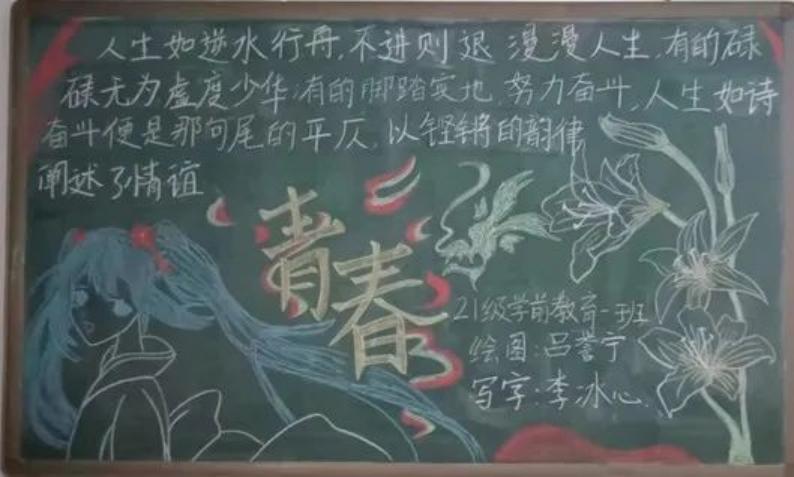 人生如逆水行舟,不进则退 漫漫人生,有的碌
碌无为虚度少华,有的脚踏实地,努力奋斗,人生如诗
奋斗便是那句尾的平仄,以铿锵的韵律
阐述了情谊
青春
21级学前教育一班
绘图:吕誉宁
写字:李冰心